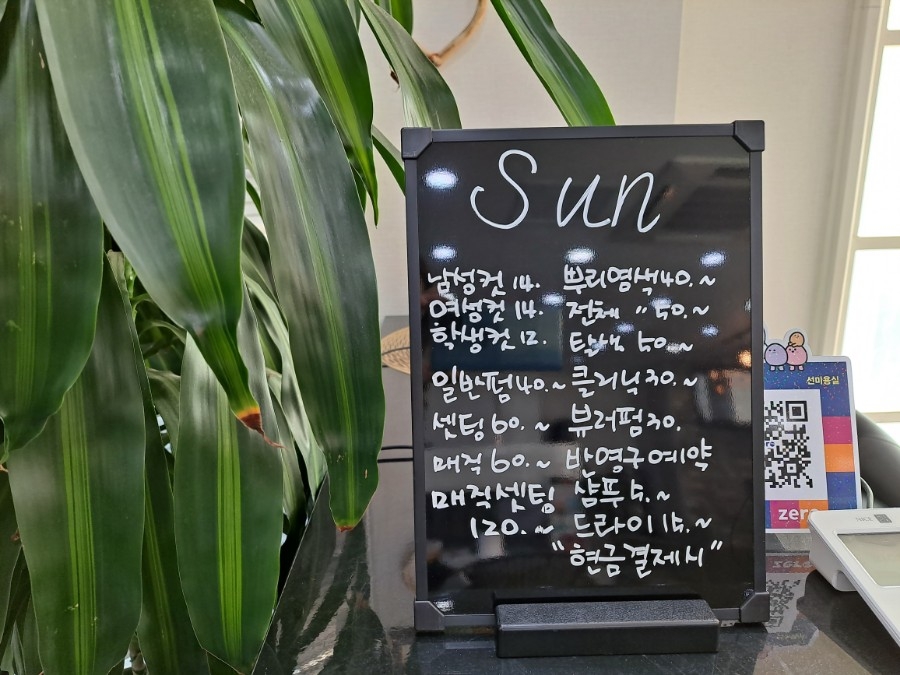 Sun
남성컷 14. 뿌리염색40.~
여성컷 14. 전체 〃 50.~
학생컷 12. 탈색 50.~
일반펌40.~ 클리닉30.~
셋팅60.~ 뷰러펌30.
매직60.~ 반영구예약
매직셋팅 샴푸5.~
120.~ 드라이15.~
"현금결제시"
선미용실
zero
NICE